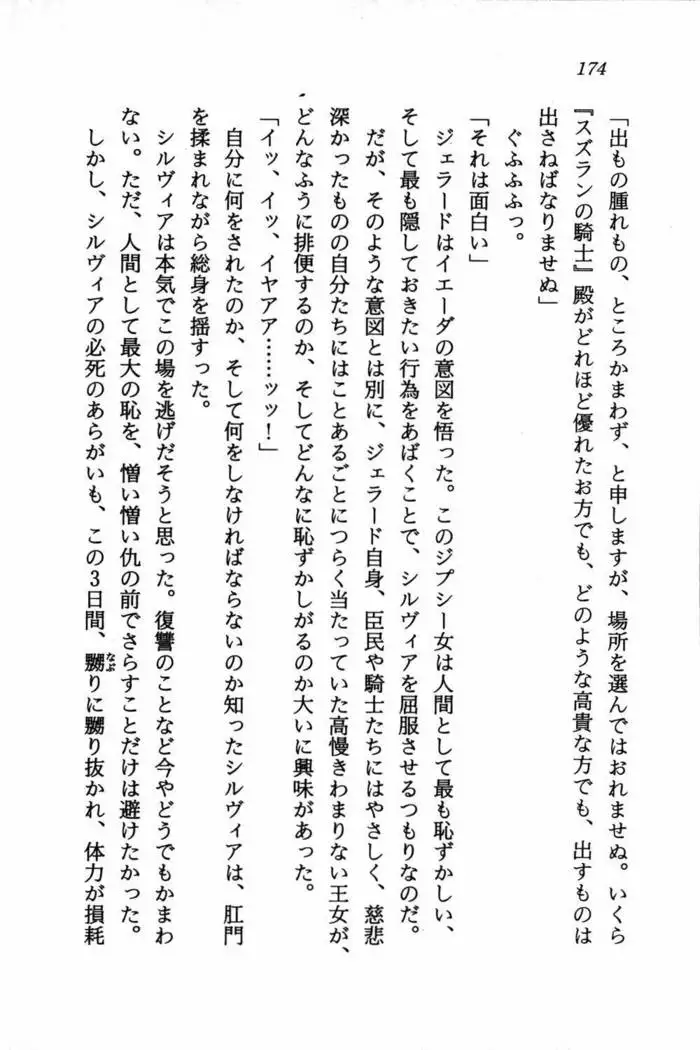 174
「出もの腫れもの、ところかまわず、と申しますが、場所を選んではおれませぬ。いくら
『スズランの騎士』殿がどれほど優れたお方でも、どのような高貴な方でも、出すものは
出さねばなりませぬ」
ぐふふふっ。
「それは面白い」
ジェラードはイエーダの意図を悟った。このジプシー女は人間として最も恥ずかしい、
そして最も隠しておきたい行為をあばくことで、シルヴィアを屈服させるつもりなのだ。
だが、そのような意図とは別に、ジェラード自身、臣民や騎士たちにはやさしく、慈悲
深かったものの自分たちにはことあるごとにつらく当たっていた高慢きわまりない王女が、
どんなふうに排便するのか、そしてどんなに恥ずかしがるのか大いに興味があった。
「イッ、イッ、イヤアア……ッッ！」
自分に何をされたのか、そして何をしなければならないのか知ったシルヴィアは、肛門
を揉まれながら総身を揺すった。
シルヴィアは本気でこの場を逃げだそうと思った。復讐のことなど今やどうでもかまわ
ない。ただ、人間として最大の恥を、憎い憎い仇の前でさらすことだけは避けたかった。
しかし、シルヴィアの必死のあらがいも、この3日間、嬲りに嬲り抜かれ、体力が損耗
なぶ